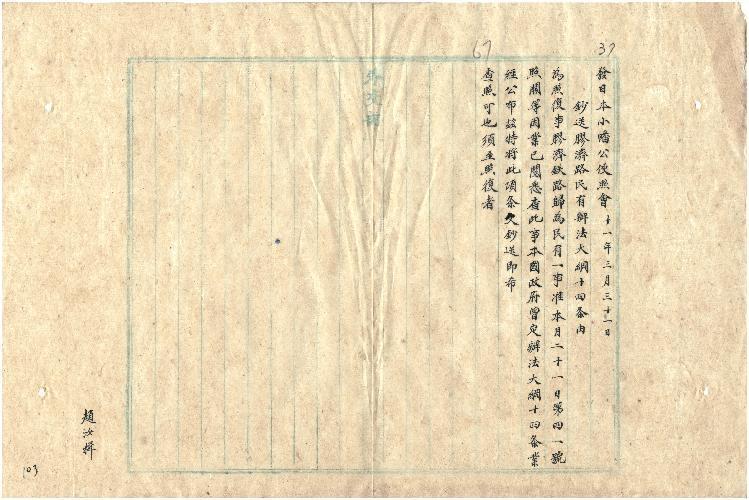 37
67
發日本小幡公使照會 十一年三月三十一日
鈔送膠濟路民有辦法大綱十四条由
為照復事膠濟鉄路歸為民有一事准本月二十一日第四一號
照開等因業已閱悉查此事本國政府曾定辦法大綱十四条業
經公布茲特將此項条文鈔送即希
查照可也須至照復者
趙汝楫
103